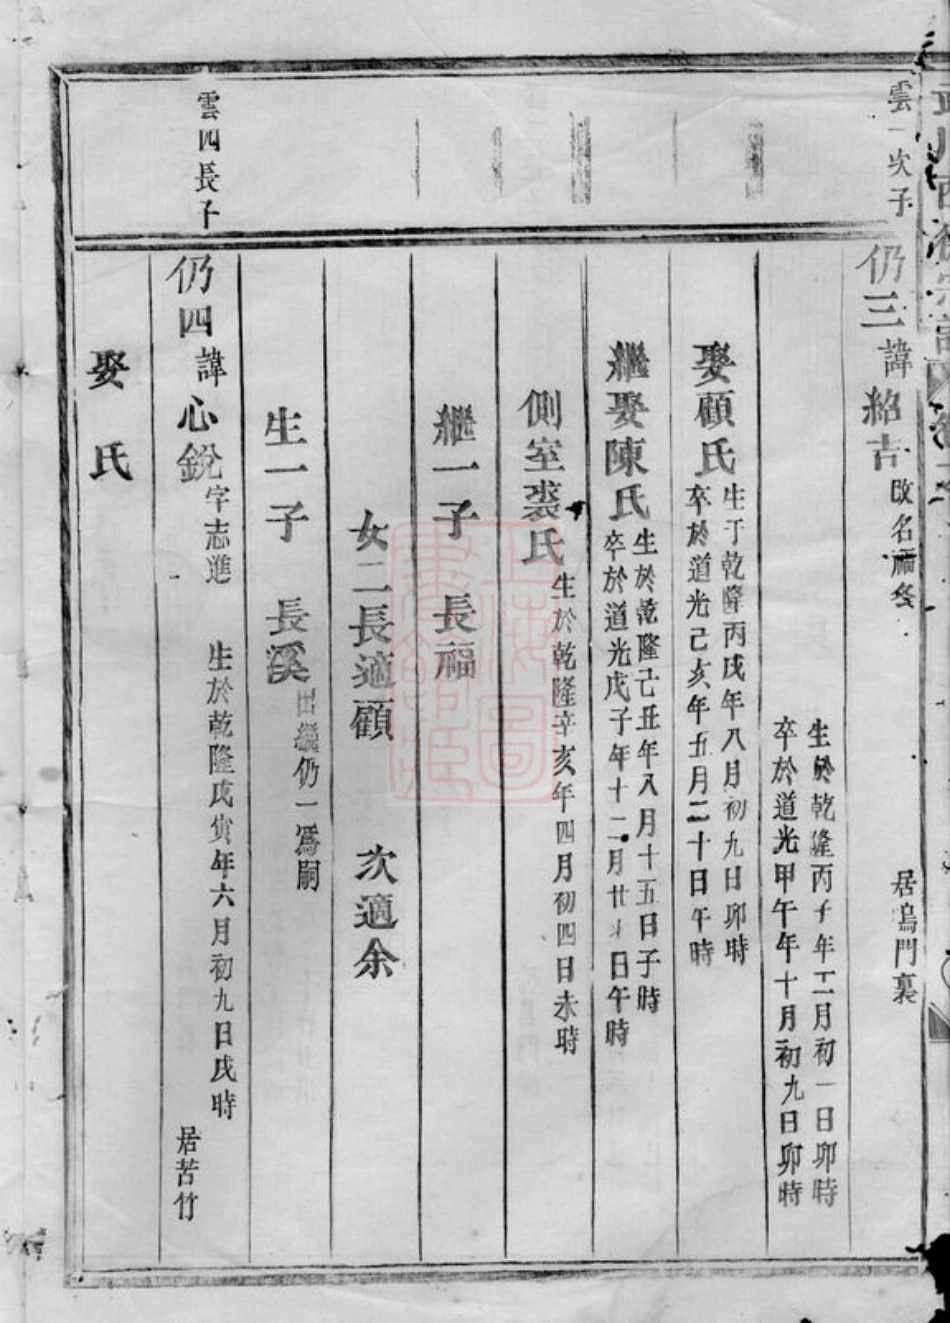 雲一次子
仍三諱紹吉改名福冬　居塢門裏
生於乾隆丙子年二月初一日卯時
卒於道光甲午年十月初九日卯時
娶顧氏
生于乾隆丙戌年八月初九日卯時
卒於道光己亥年五月二十日午時
繼娶陳氏
生於乾隆己丑年八月十五日子時
卒於道光戊子年十二月廿日午時
側室裘氏生於乾隆辛亥年四月初四日未時
繼一子　長福
女二長適顧　次適余
生一子　長溪出繼仍一爲嗣
雲四長子
仍四諱心銳字志進　生於乾隆戊寅年六月初九日戌時　居苦竹
娶　氏
上海圖書館藏